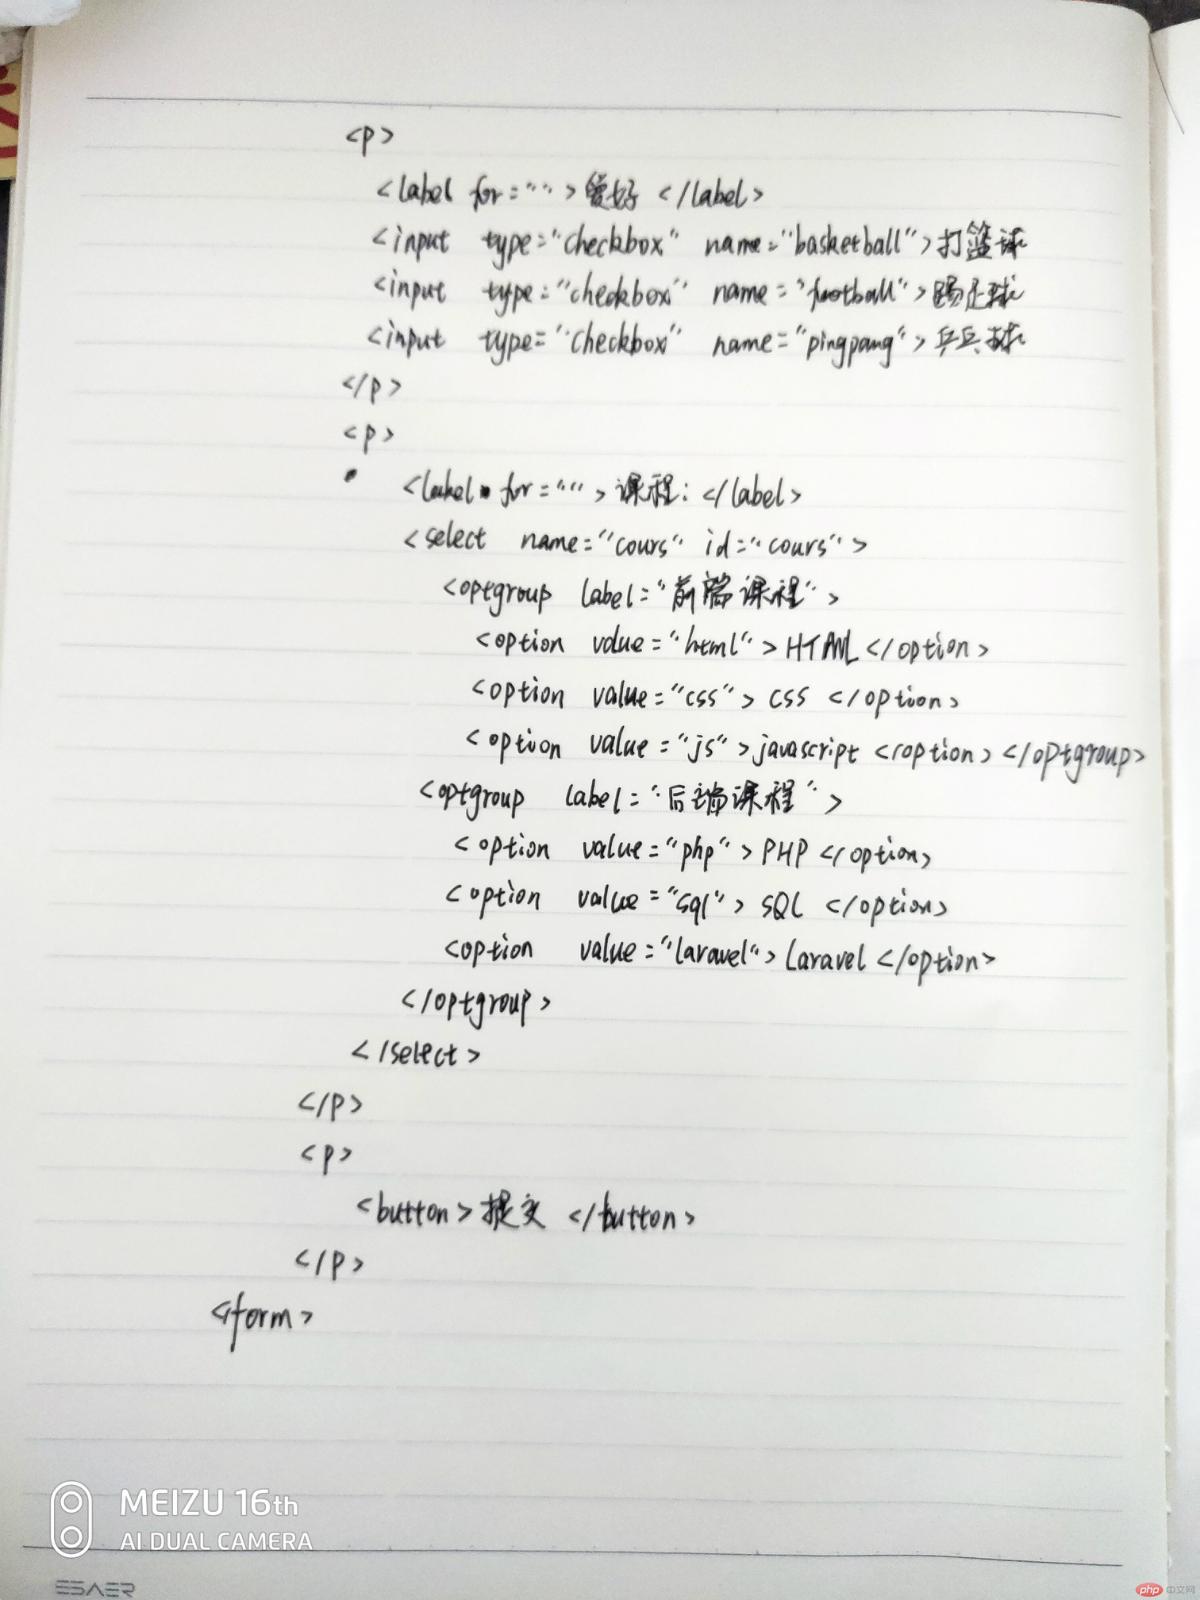 <p>
<label for="">爱好 </label>
<input type="checkbox" name="basketball">打篮球
<input type="checkbox" name="football">踢足球
<input type="checkbox" name="pingpang">乒乓球
</p>
<p>
<label for="">课程:</label>
<select name="cours" id="cours">
<optgroup label="前端课程">
<option value="html">HTML</option>
<option value="css">CSS </option>
<option value="js">javascript </option></optgroup>
<optgroup label="后端课程">
<option value="php">PHP </option>
<option value="sql">SQL </option>
<option value="laravel">Laravel </option>
</optgroup>
</select>
</p>
<p>
<button>提交 </button>
</p>
</form>
MEIZU 16th
AI DUAL CAMERA
ESAER
php 中文网